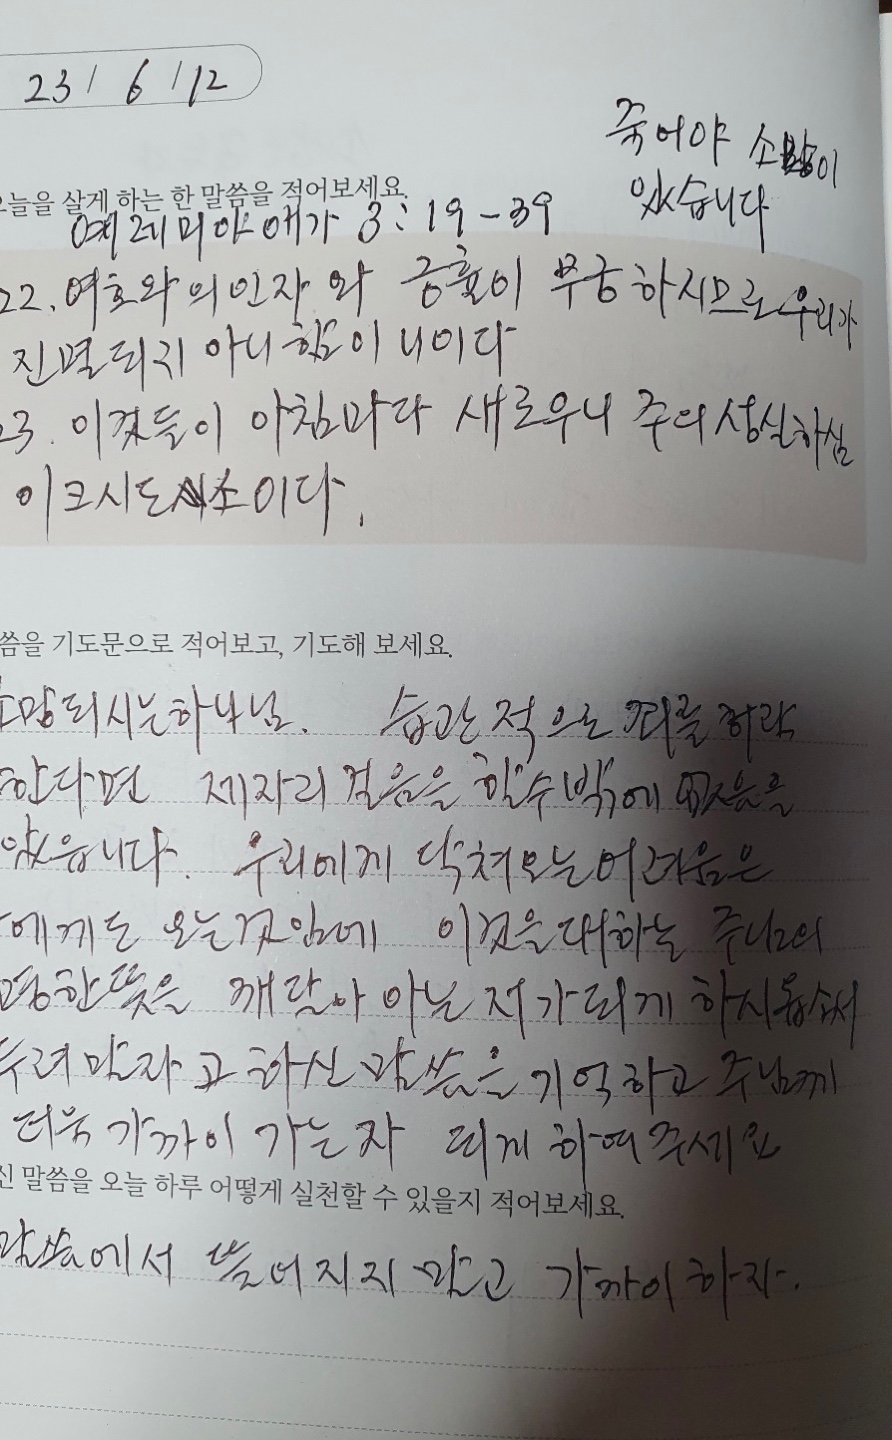 23 / 6 / 12
죽어야 소망이
있습니다
오늘을 살게 하는 한 말씀을 적어보세요.
예레미야 애가 3:19-39
22. 여호와의 인자와 긍휼이 무궁하시므로 우리가
진멸되지 아니함이니이다
23. 이것들이 아침마다 새로우니 주의 성실하심
이 크시도소이다.
씀을 기도문으로 적어보고, 기도해 보세요.
소망되시는 하나님. 습관적으로 죄를
한다면 제자리 걸음을 할수밖에 없음을
있읍니다. 우리에게 닥쳐오는 어려움은
에게도 오는것임에 이것을 대하는 주님의
한뜻을 깨달아 아는 저가 되게 하시옵소서
두려 말라고 하신 말씀을 기억하고 주님께
더욱 가까이 가는자 되게 하여주세요
신 말씀을 오늘 하루 어떻게 실천할 수 있을지 적어보세요.
말씀에서 뜰어지지 말고 가까이 하자.